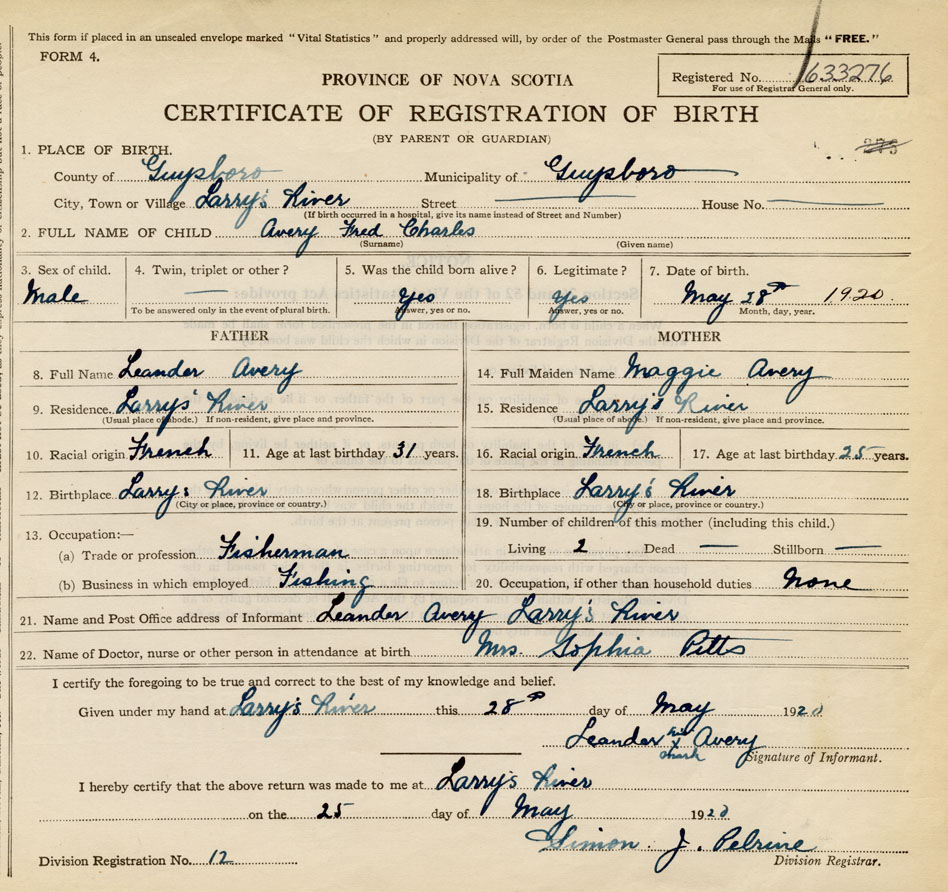 This form if placed in an unsealed envelope marked "Vital Statistics" and properly addressed will, by order of the Postmaster General pass through the Mails "FREE."
FORM 4.
PROVINCE OF NOVA SCOTIA
Registered No. 1633276
For use of Registrar General only.
CERTIFICATE OF REGISTRATION OF BIRTH
(BY PARENT OR GUARDIAN)
1. PLACE OF BIRTH.
County of Guysboro Municipality of Guysboro
City, Town or Village Larry's River Street House No.
(If birth occurred in a hospital, give its name instead of Street and Number)
2. FULL NAME OF CHILD Avery Fred Charles
(Surname) (Given name)
3. Sex of child. 4. Twin, triplet or other? 5. Was the child born alive? 6. Legitimate? 7. Date of birth.
Male — Yes Yes May 28th 1920.
To be answered only in the event of plural birth. Answer, yes or no. Answer, yes or no. Month, day, year.
FATHER MOTHER
8. Full Name Leander Avery 14. Full Maiden Name Maggie Avery
9. Residence. Larrys' River 15. Residence Larry's River
(Usual place of abode.) If non-resident, give place and province. (Usual place of abode.) If non-resident, give place and province.
10. Racial origin French 11. Age at last birthday 31 years. 16. Racial origin French 17. Age at last birthday 25 years.
12. Birthplace Larry's River 18. Birthplace Larry's River
(City or place, province or country.) (City or place, province or country.)
13. Occupation:— 19. Number of children of this mother (including this child.)
(a) Trade or profession Fisherman Living 2 Dead — Stillborn —
(b) Business in which employed Fishing 20. Occupation, if other than household duties None
21. Name and Post Office address of Informant Leander Avery Larry's River
22. Name of Doctor, nurse or other person in attendance at birth Mrs. Sophia Pitts
I certify the foregoing to be true and correct to the best of my knowledge and belief.
Given under my hand at Larry's River this 28th day of May 1920
Leander his X mark Avery
Signature of Informant.
I hereby certify that the above return was made to me at Larry's River
on the 25 day of May 1920
Simon J. Pelrine
Division Registration No. 12 Division Registrar.